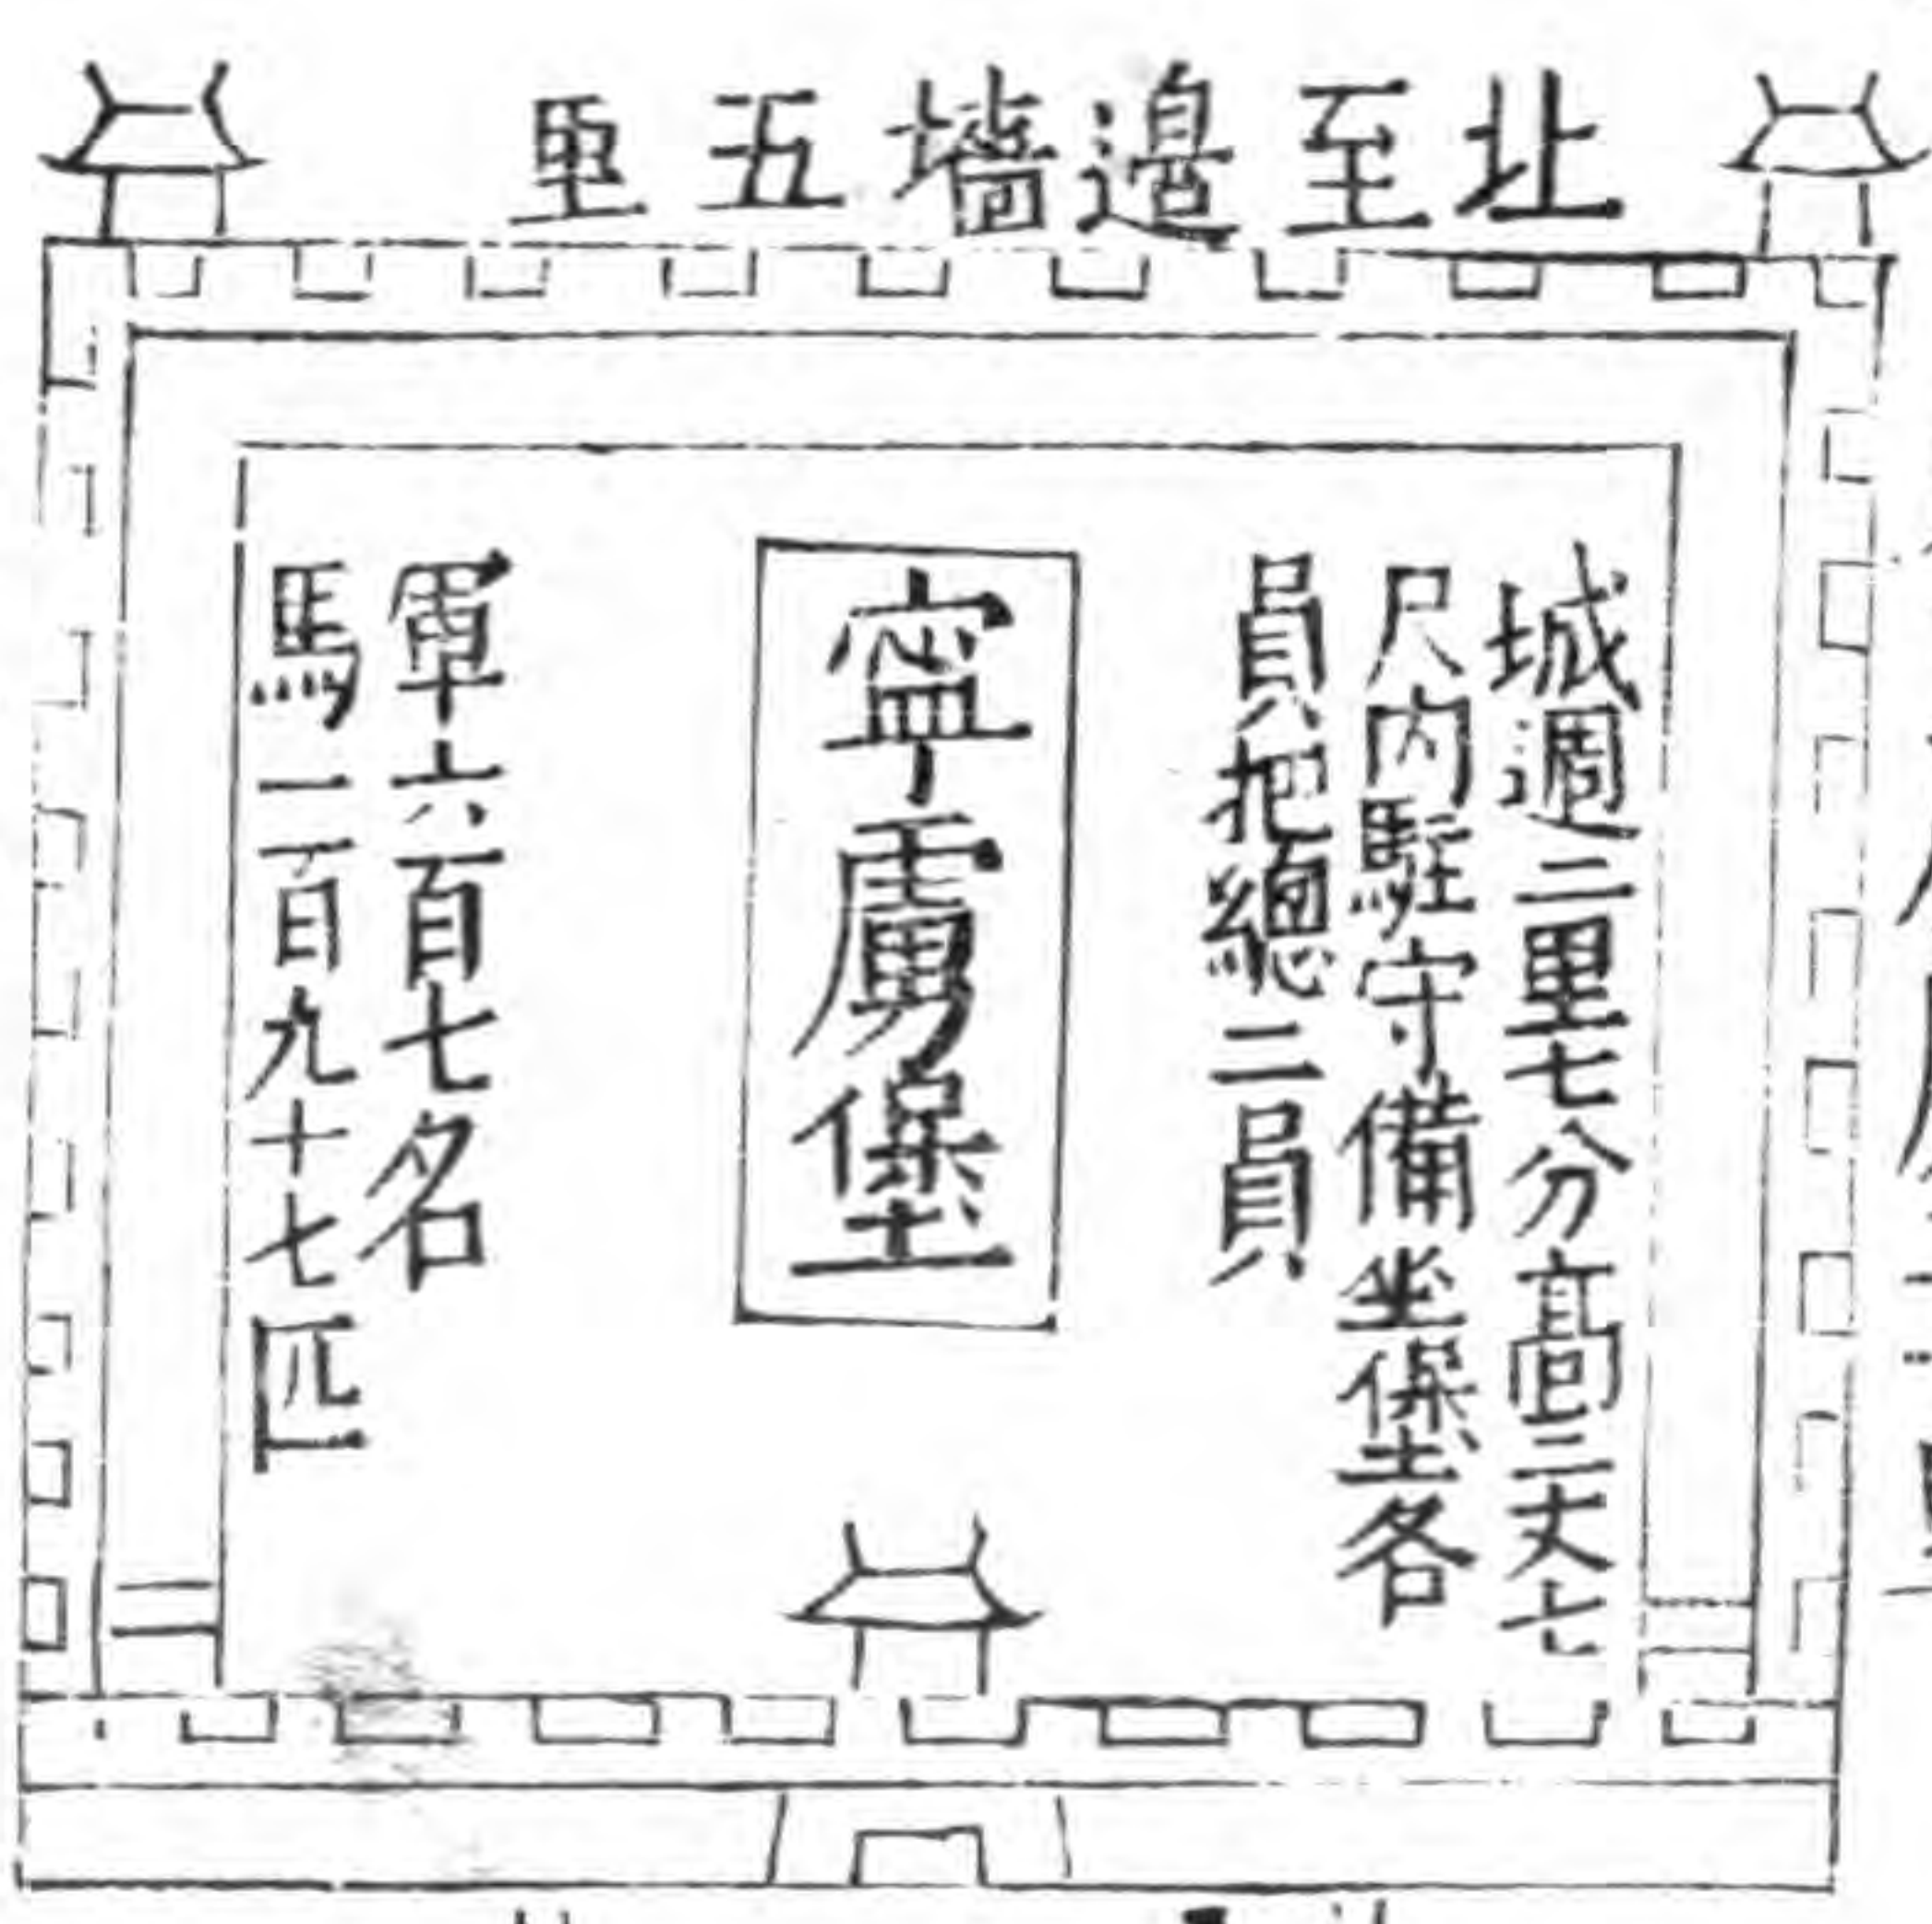 北至邊墻五里
城週二里七分高三丈七
尺内駐守備坐堡各
員把總二員
寧虜堡
軍六百七名
馬一百九十七匹